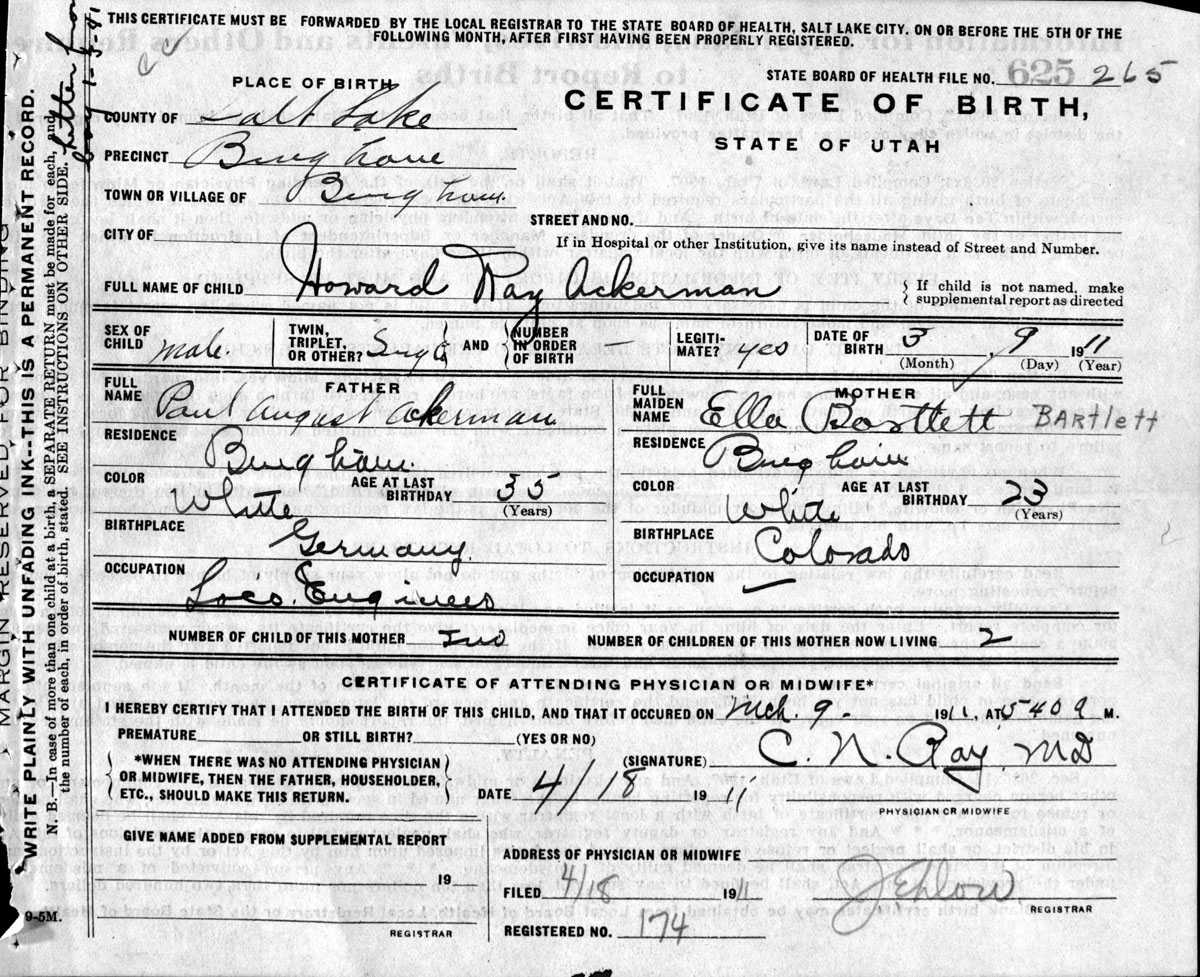 THIS CERTIFICATE MUST BE FORWARDED BY THE LOCAL REGISTRAR TO THE STATE BOARD OF HEALTH, SALT LAKE CITY, ON OR BEFORE THE 5TH OF THE
FOLLOWING MONTH, AFTER FIRST HAVING BEEN PROPERLY REGISTERED.
STATE BOARD OF HEALTH FILE NO. 625 265
PLACE OF BIRTH
CERTIFICATE OF BIRTH,
STATE OF UTAH
COUNTY OF Salt Lake
PRECINCT Bingham
TOWN OR VILLAGE OF Bingham
STREET AND NO.
CITY OF
If in Hospital or other Institution, give its name instead of Street and Number.
FULL NAME OF CHILD Howard Ray Ackerman
If child is not named, make
supplemental report as directed
SEX OF CHILD male
TWIN, TRIPLET, OR OTHER? Single AND NUMBER IN ORDER OF BIRTH —
LEGITIMATE? yes
DATE OF BIRTH 3 , 9 1911
(Month) (Day) (Year)
FATHER
FULL NAME Paul August Ackerman
RESIDENCE Bingham
COLOR White
AGE AT LAST BIRTHDAY 35
(Years)
BIRTHPLACE Germany
OCCUPATION Loco. Engineer
MOTHER
FULL MAIDEN NAME Ella Bartlett BARTlett
RESIDENCE Bingham
COLOR White
AGE AT LAST BIRTHDAY 23
(Years)
BIRTHPLACE Colorado
OCCUPATION —
NUMBER OF CHILD OF THIS MOTHER Two
NUMBER OF CHILDREN OF THIS MOTHER NOW LIVING 2
CERTIFICATE OF ATTENDING PHYSICIAN OR MIDWIFE*
I HEREBY CERTIFY THAT I ATTENDED THE BIRTH OF THIS CHILD, AND THAT IT OCCURED ON Mch. 9- 1911, AT 540 a M.
PREMATURE OR STILL BIRTH? (YES OR NO)
*WHEN THERE WAS NO ATTENDING PHYSICIAN
OR MIDWIFE, THEN THE FATHER, HOUSEHOLDER,
ETC., SHOULD MAKE THIS RETURN.
(SIGNATURE) C. N. Ray MD
DATE 4/18 1911
PHYSICIAN OR MIDWIFE
GIVE NAME ADDED FROM SUPPLEMENTAL REPORT
19
REGISTRAR
ADDRESS OF PHYSICIAN OR MIDWIFE
FILED 4/8 191
REGISTRAR
REGISTERED NO. 174
9-5M.
MARGIN RESERVED FOR BINDING
WRITE PLAINLY WITH UNFADING INK--THIS IS A PERMANENT RECORD.
N. B.—In case of more than one child at a birth, a SEPARATE RETURN must be made for each, and
the number of each, in order of birth, stated. SEE INSTRUCTIONS ON OTHER SIDE.